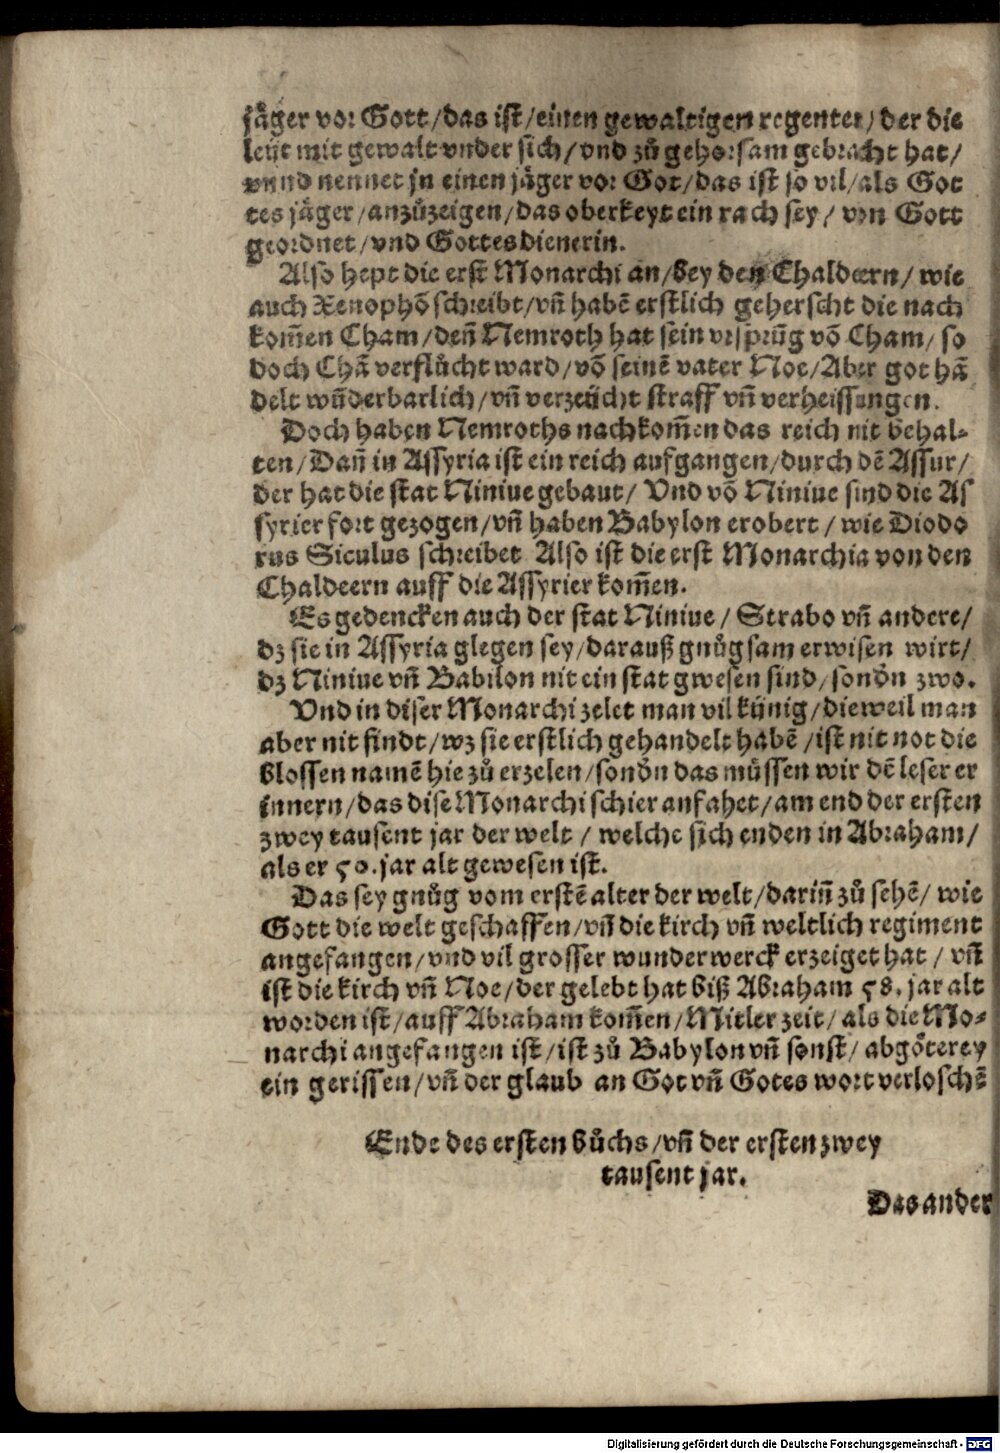 jäger vor Gott/das ist/einen gewaltigen regenten/der die
leüt mit gewalt vnder sich/vnd zů gehorsam gebracht hat/
vnnd nennet jn einen jäger vor Got/das ist so vil/als Got
tes jäger/anzůzeigen/das oberkeyt ein rach sey/von Gott
geordnet/vnd Gottes dienerin.
Also hept die erst Monarchi an/bey den Chaldeern/wie
auch Xenophō schreibt/vñ habē erstlich geherscht die nach
kom̃en Cham/deñ Nemroth hat sein vrsprūg vō Cham/so
doch Chā verflůcht ward/vō seinē vater Noe/Aber got hā
delt wūderbarlich/vñ verzeücht straff vñ verheissungen.
Doch haben Nemroths nachkom̃en das reich nit behal⸗
ten/Dañ in Assyria ist ein reich aufgangen/durch dē Assur/
der hat die stat Niniue gebaut/Vnd vō Niniue sind die As
syrier fort gezogen/vñ haben Babylon erobert/wie Diodo
rus Siculus schreibet Also ist die erst Monarchia von den
Chaldeern auff die Assyrier kom̃en.
Es gedencken auch der stat Niniue/Strabo vñ andere/
dz sie in Assyria glegen sey/darauß gnůgsam erwisen wirt/
dz Niniue vñ Babilon nit ein stat gwesen sind/sondn̄ zwo.
Vnd in diser Monarchi zelet man vil künig/dieweil man
aber nit findt/wz sie erstlich gehandelt habē/ist nit not die
blossen namē hie zů erzelen/sondn̄ das müssen wir dē leser er
innern/das dise Monarchi schier anfahet/am end der ersten
zwey tausent jar der welt/welche sich enden in Abraham/
als er 50. jar alt gewesen ist.
Das sey gnůg vom erstē alter der welt/dariñ zů sehē/wie
Gott die welt geschaffen/vñ die kirch vñ weltlich regiment
angefangen/vnd vil grosser wunderwerck erzeiget hat/vñ
ist die kirch vñ Noe/der gelebt hat biß Abraham 58. jar alt
worden ist/auff Abraham kom̃en/Mitler zeit/als die Mo⸗
narchi angefangen ist/ist zů Babylon vñ sonst/abgötterey
ein gerissen/vñ der glaub an Got vñ Gotes wort verloschē
Ende des ersten bůchs/vñ der ersten zwey
tausent jar.
Das ander
Digitalisierung gefördert durch die Deutsche Forschungsgemeinschaft - DFG